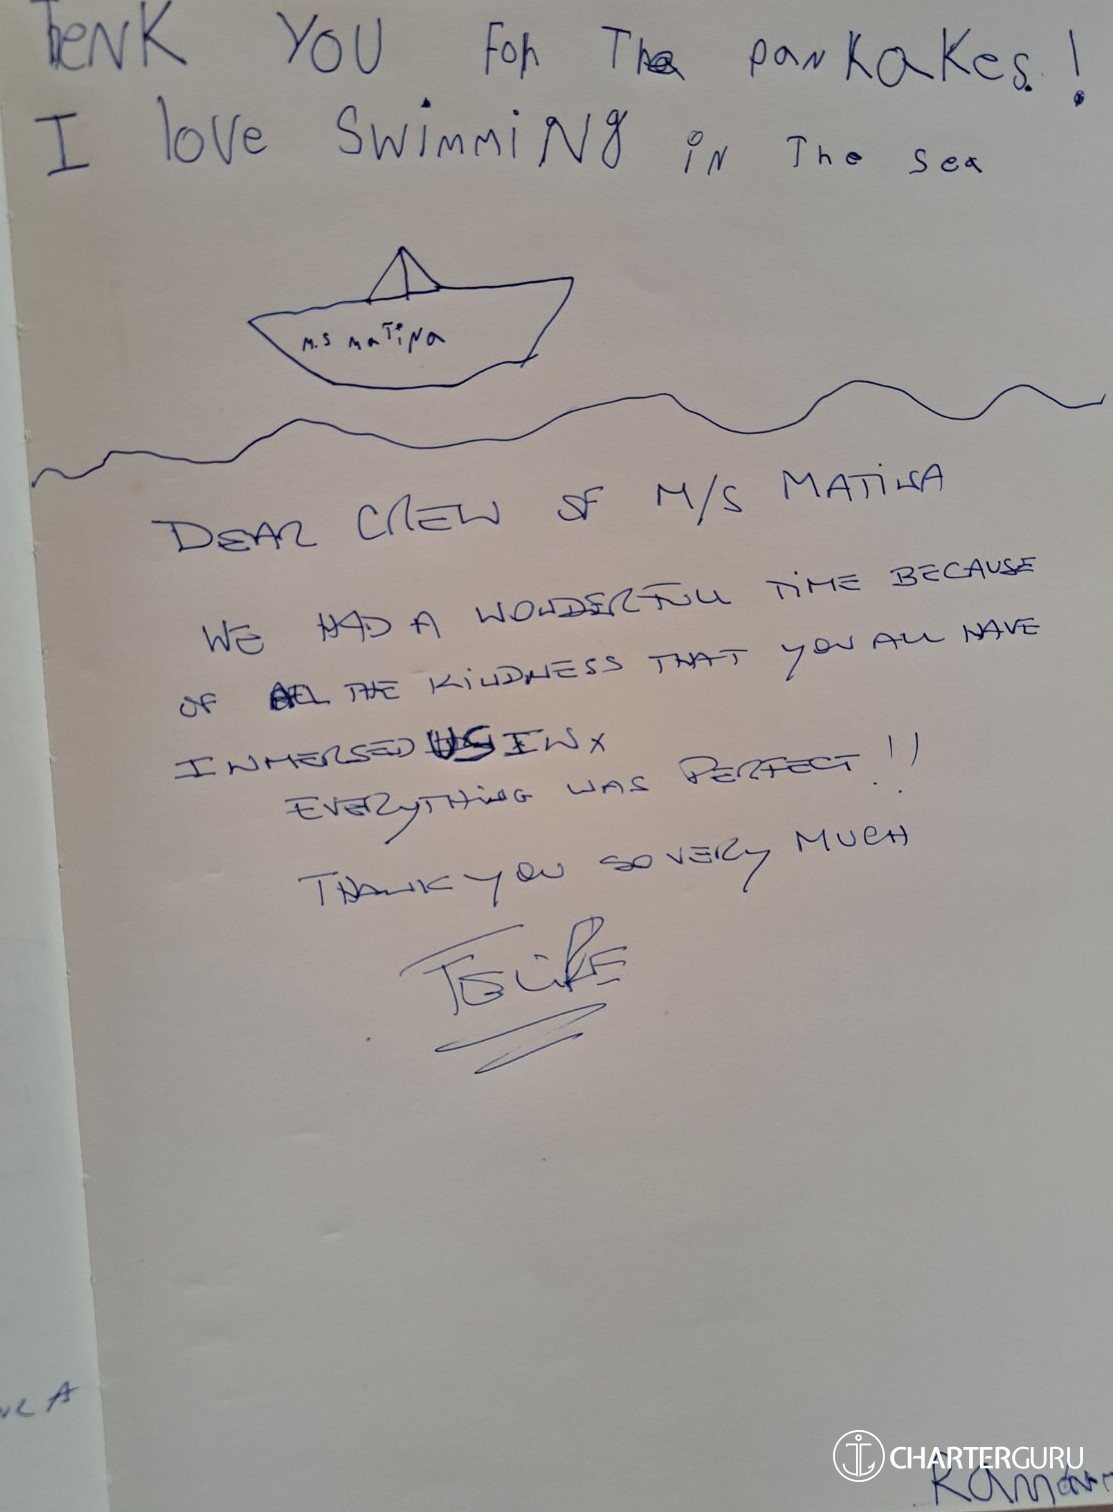 THENK YOU FOR The panKaKes!
I love SwimmiNg iN The sea
M.S MaTiNa
DEAR CREW OF M/S MATINA
WE HAD A WONDERFULL TIME BECAUSE
OF ALL THE KINDNESS THAT YOU ALL HAVE
INMERSED US IN x
EVERYTHING WAS PERFECT!!
THANK YOU SO VERY MUCH
FELIPE
CHARTERGURU